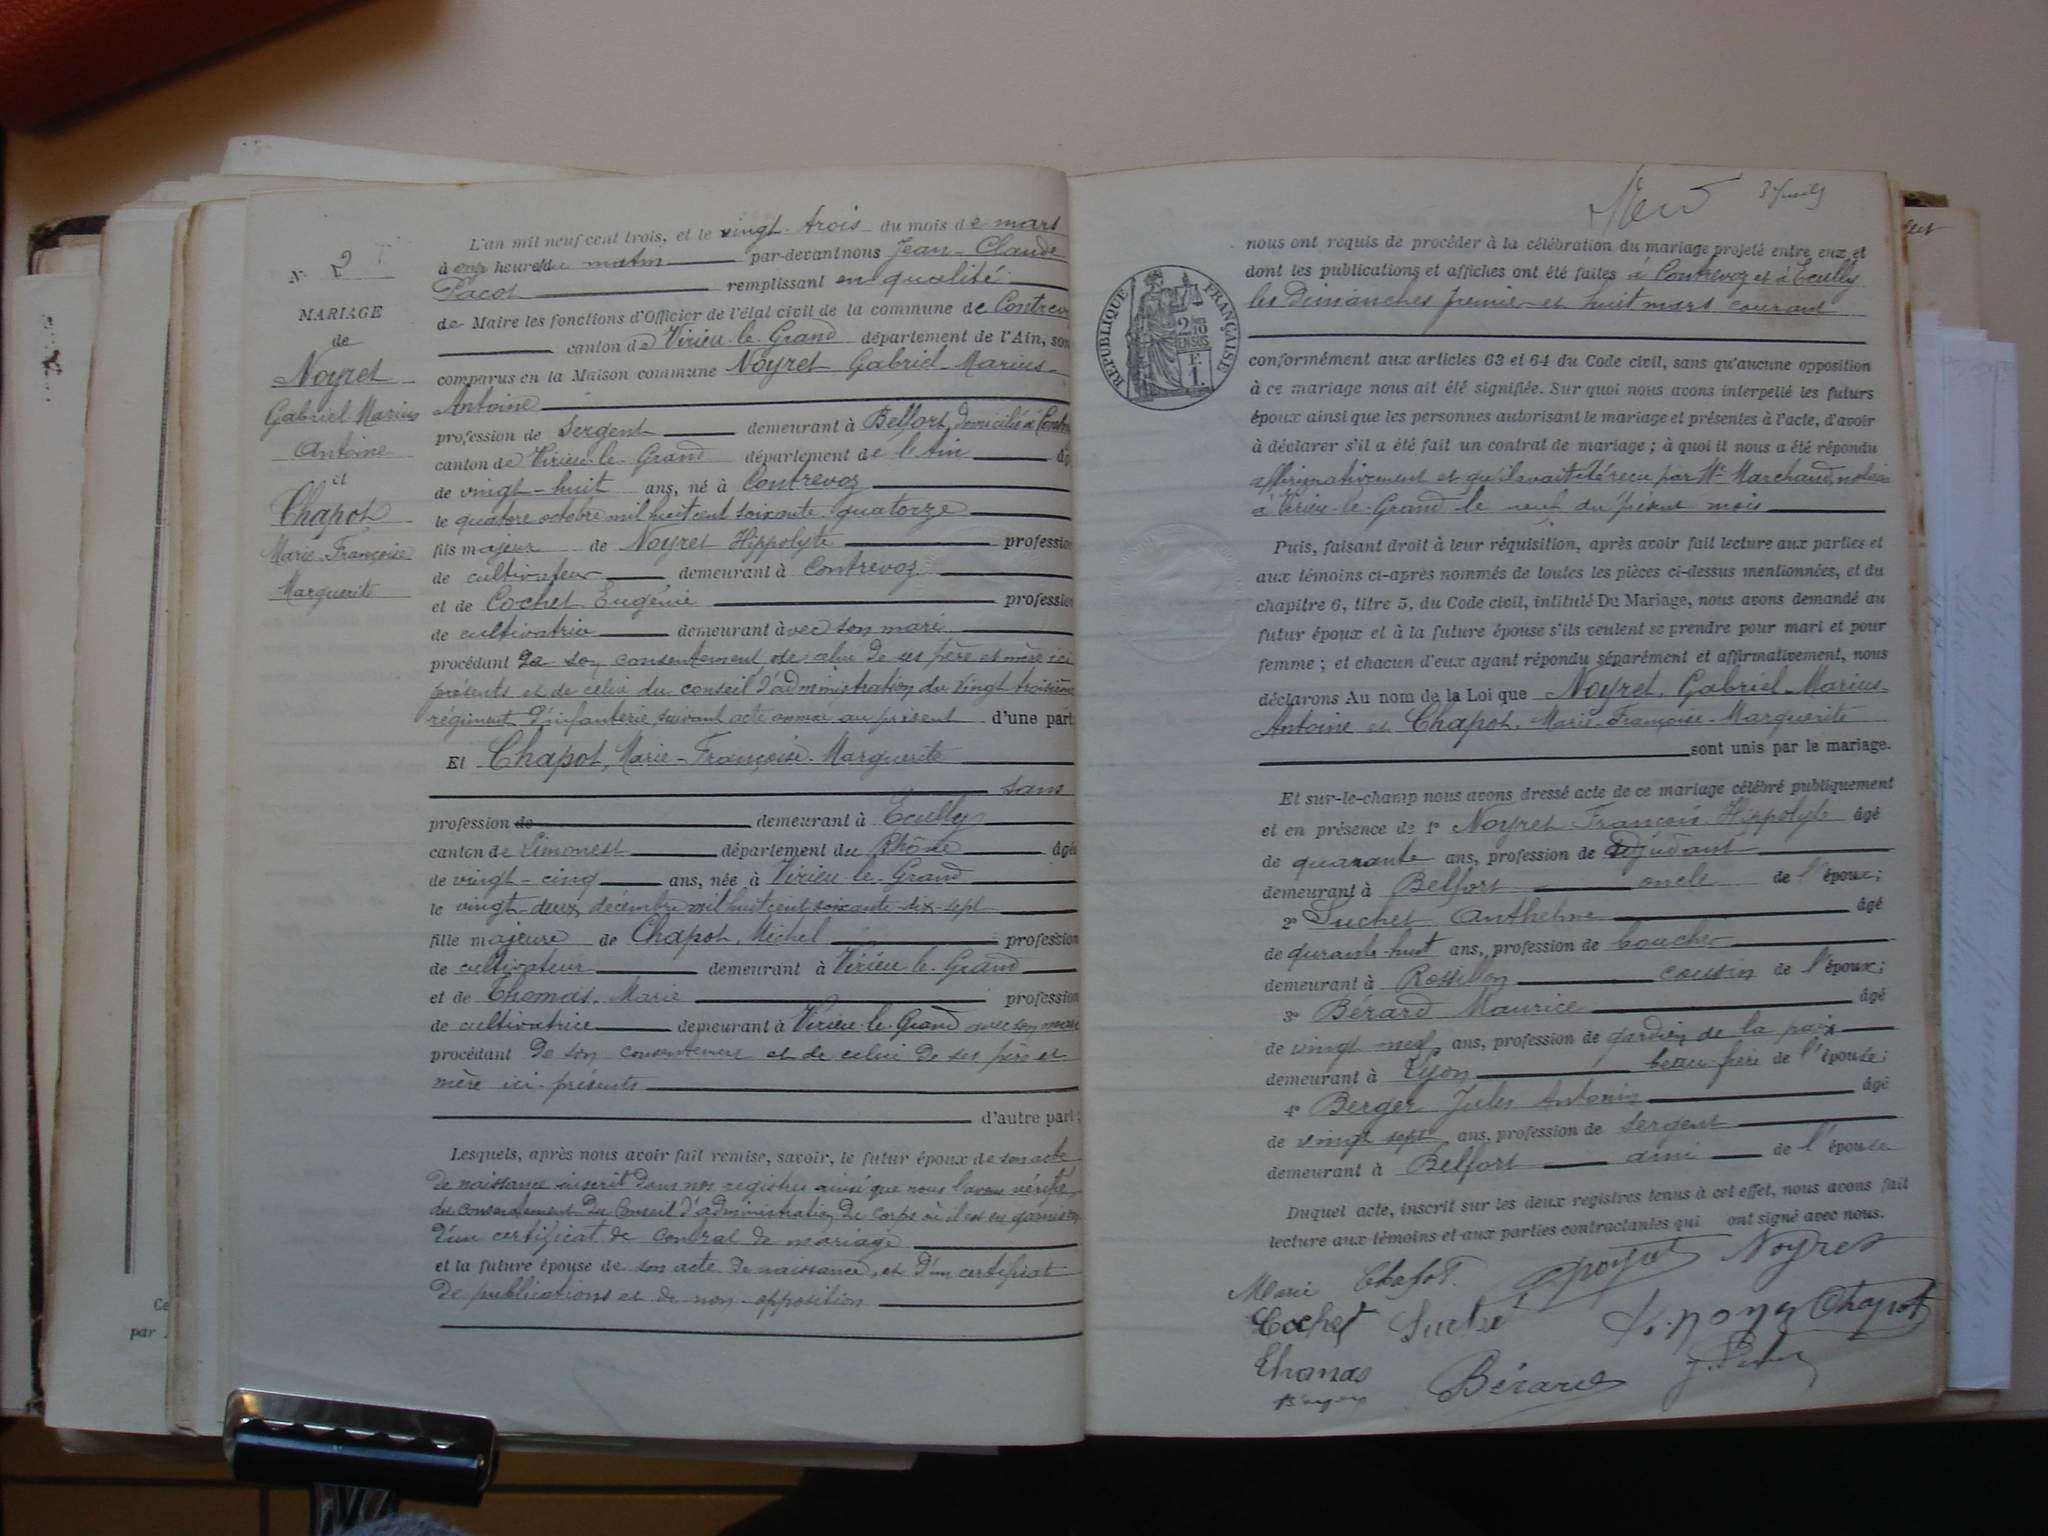 N° 2
MARIAGE
de
Noyret
Gabriel Marius
Antoine
et
Chapot
Marie Françoise
Marguerite
L'an mil neuf cent trois, et le vingt trois du mois de mars
à onze heures du matin par-devant nous Jean-Claude
Pacot remplissant en qualité
de Maire les fonctions d'Officier de l'état civil de la commune de Contrevoz
canton de Virieu-le-Grand département de l'Ain, sont
comparus en la Maison commune Noyret Gabriel-Marius-
Antoine
profession de Sergent demeurant à Belfort, domicilié à
canton de Virieu-le-Grand département de l'Ain âgé
de vingt-huit ans, né à Contrevoz
le quatore octobre mil huit cent soixante quatorze
fils majeur de Noyret Hippolyte profession
de cultivateur demeurant à Contrevoz
et de Cochet Eugénie profession
de cultivatrice demeurant avec son mari
procédant de son consentement, de celui de ses père et mère ici
présents et de celui du conseil d'administration du vingt troisième
régiment d'infanterie, suivant acte annexé au présent d'une part
Et Chapot, Marie-Françoise-Marguerite
sans
profession de demeurant à Ecully
canton de Limonest département du Rhône âgée
de vingt-cinq ans, née à Virieu-le-Grand
le vingt-deux décembre mil huit cent soixante-dix-sept
fille majeure de Chapot, Michel profession
de cultivateur demeurant à Virieu-le-Grand
et de Thomas, Marie profession
de cultivatrice demeurant à Virieu-le-Grand avec son mari
procédant de son consentement et de celui de ses père et
mère ici présents
d'autre part;
Lesquels, après nous avoir fait remise, savoir, le futur époux de son acte
de naissance inscrit dans nos registres ainsi que nous l'avons vérifié,
du consentement du Conseil d'administration du corps où il est en garnison
d'un certificat de contrat de mariage
et la future épouse de son acte de naissance, et d'un certificat
de publications et de non-opposition
3
RÉPUBLIQUE FRANÇAISE
2/10 EN SUS
1 F.
nous ont requis de procéder à la célébration du mariage projeté entre eux et
dont les publications et affiches ont été faites à Contrevoz et à Ecully
les Dimanches premier et huit mars courant
conformément aux articles 63 et 64 du Code civil, sans qu'aucune opposition
à ce mariage nous ait été signifiée. Sur quoi nous avons interpellé les futurs
époux ainsi que les personnes autorisant le mariage et présentes à l'acte, d'avoir
à déclarer s'il a été fait un contrat de mariage ; à quoi il nous a été répondu
affirmativement et qu'il avait été reçu par Me Marchand, notaire
à Virieu-le-Grand le neuf du présent mois
Puis, faisant droit à leur réquisition, après avoir fait lecture aux parties et
aux témoins ci-après nommés de toutes les pièces ci-dessus mentionnées, et du
chapitre 6, titre 5, du Code civil, intitulé Du Mariage, nous avons demandé au
futur époux et à la future épouse s'ils veulent se prendre pour mari et pour
femme ; et chacun d'eux ayant répondu séparément et affirmativement, nous
déclarons Au nom de la Loi que Noyret, Gabriel-Marius-
Antoine et Chapot, Marie-Françoise-Marguerite
sont unis par le mariage.
Et sur-le-champ nous avons dressé acte de ce mariage célébré publiquement
et en présence de 1° Noyret François Hippolyte âgé
de quarante ans, profession de adjudant
demeurant à Belfort oncle de l'époux;
2° Suchet Anthelme âgé
de qurante-huit ans, profession de boucher
demeurant à Rossillon cousin de l'époux;
3° Bérard Maurice âgé
de vingt neuf ans, profession de gardien de la paix
demeurant à Lyon beau-frère de l'épouse;
4° Berger Jules Antonin âgé
de vingt sept ans, profession de sergent
demeurant à Belfort ami de l'épouse
Duquel acte, inscrit sur les deux registres tenus à cet effet, nous avons fait
lecture aux témoins et aux parties contractantes qui ont signé avec nous.
Marie Chapot. Noyret
Cochet Suchet Chapot
Thomas Bérard